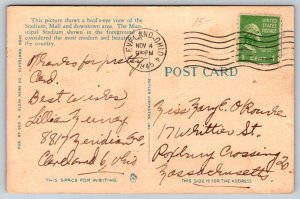 This picture shows a bird's-eye view of the
Stadium, Mall and downtown area. The Mun-
icipal Stadium shown in the foreground is
considered the most modern and beautiful in
the country.
15-
CLEVELAND, OHIO
NOV 4
6 PM
1945
UNITED STATES
1 CENT 1
POST CARD
Thanks for pretty
Card.
Best Wishes,
Lillian Murray
8817 Meridian Ave
Cleveland 6, Ohio
Miss Mary C. O'Rourke
17 Whittier St.
Roxbury Crossing 20
Massachusetts
THIS SPACE FOR WRITING.
THIS SIDE IS FOR THE ADDRESS.